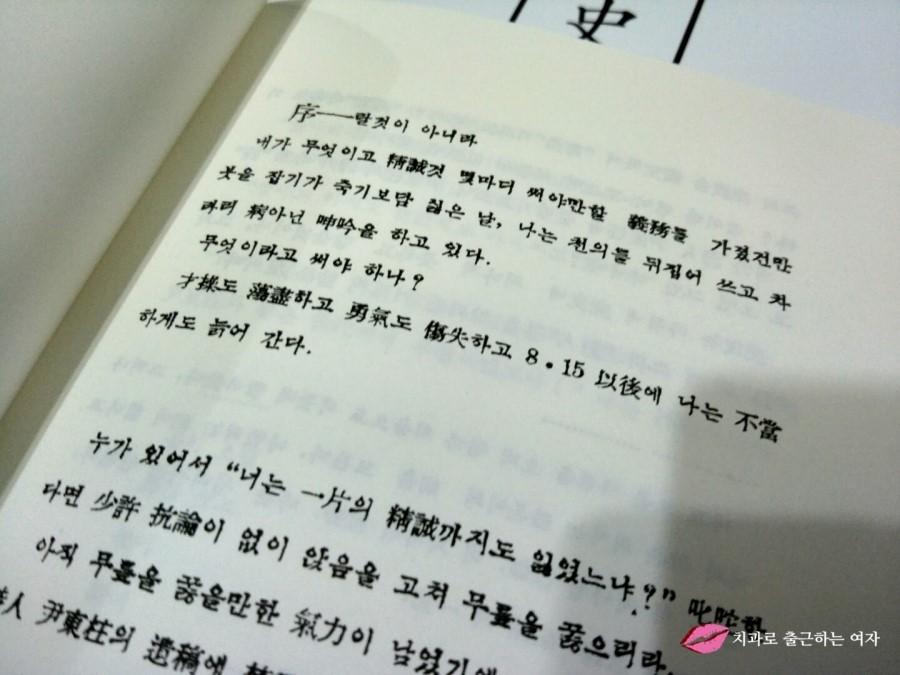 序──랄것이 아니라
내가 무엇이고 精誠것 몇마디 써야만할 義務를 가졌건만
붓을 잡기가 죽기보담 싫은 날, 나는 천의를 뒤집어 쓰고 차
라리 病아닌 呻吟을 하고 있다.
무엇이라고 써야 하나?
才操도 蕩盡하고 勇氣도 傷失하고 8•15 以後에 나는 不當
하게도 늙어 간다.
누가 있어서 “너는 一片의 精誠까지도 잃었느냐?” 叱咤한
다면 少許 抗論이 없이 앉음을 고쳐 무릎을 꿇으리라.
아직 무릎을 꿇을만한 氣力이 남었기에
人 尹東柱의 遺稿에
치과로 출근하는 여자